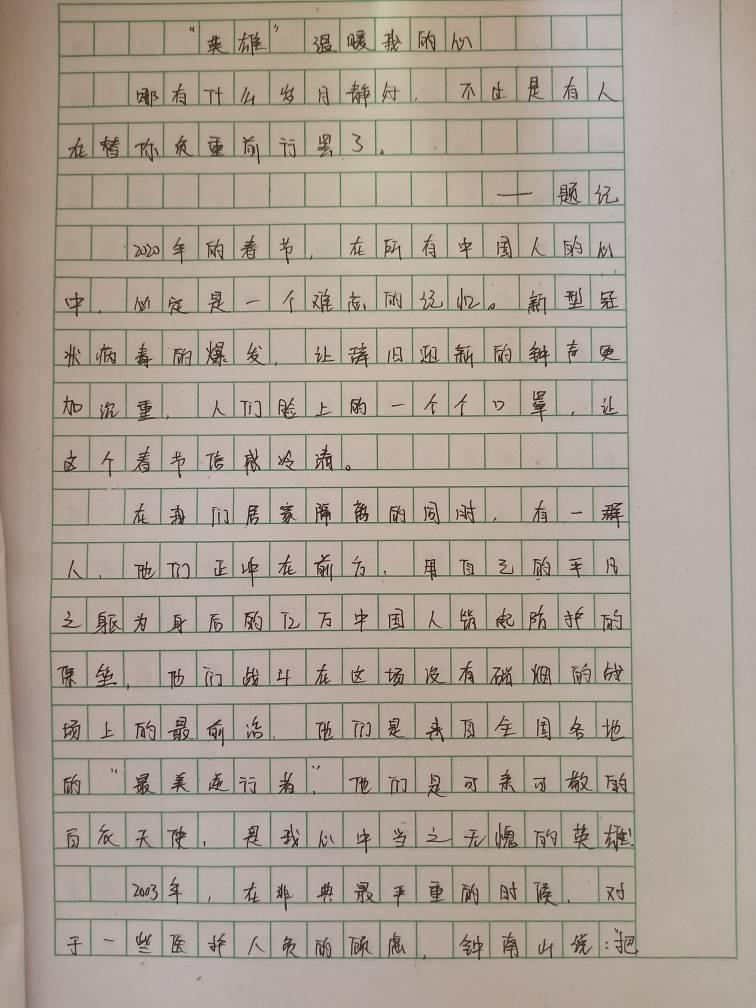 “英雄”温暖我的心
哪有什么岁月静好，不过是有人
在替你负重前行罢了。
——题记
2020年的春节，在所有中国人的心
中，必定是一个难忘的记忆。新型冠
状病毒的爆发，让辞旧迎新的钟声更
加沉重，人们脸上的一个个口罩，让
这个春节倍感冷清。
在我们居家隔离的同时，有一群
人，他们正冲在前方，用自己的平凡
之躯为身后的亿万中国人筑起防护的
堡垒，他们战斗在这场没有硝烟的战
场上的最前沿，他们是来自全国各地
的“最美逆行者”，他们是可亲可敬的
白衣天使，是我心中当之无愧的英雄！
2003年，在非典最严重的时候，对
于一些医护人员的顾虑，钟南山说：“把